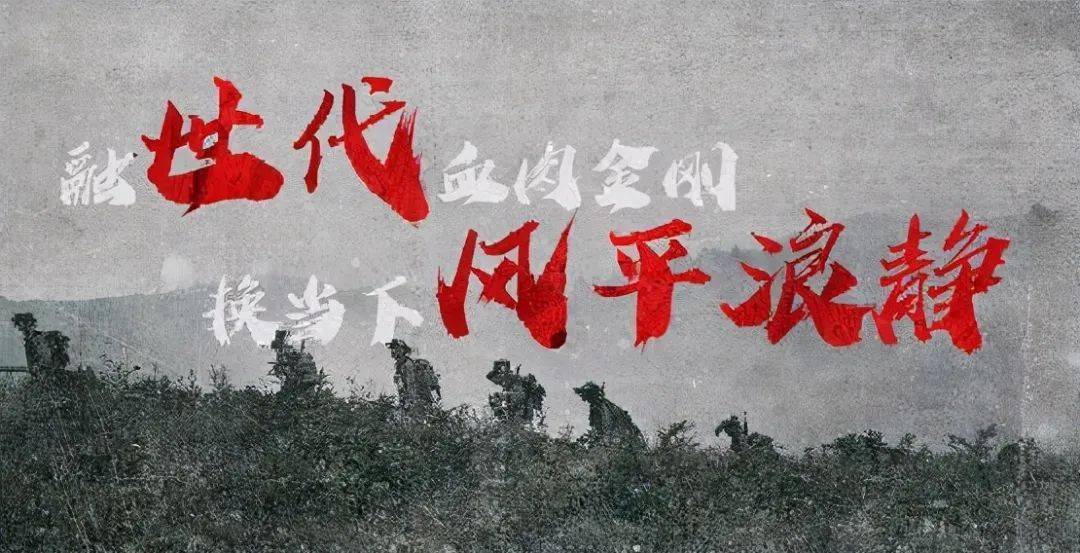 融世代血肉金刚
换当下风平浪静